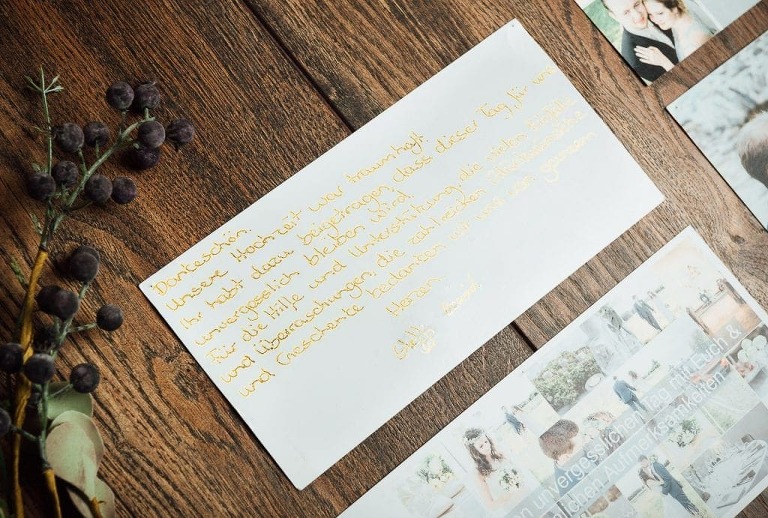 Dankeschön.
Unsere Hochzeit war traumhaft.
Ihr habt dazu beigetragen, dass dieser Tag für uns
unvergesslich bleiben wird.
Für die Hilfe und Unterstützung, die vielen
und Überraschungen, die zahlreichen
und Geschenke bedanken wir uns von ganzem
Herzen.
unvergesslichen Tag mit Euch &
lichen Aufmerksamkeiten